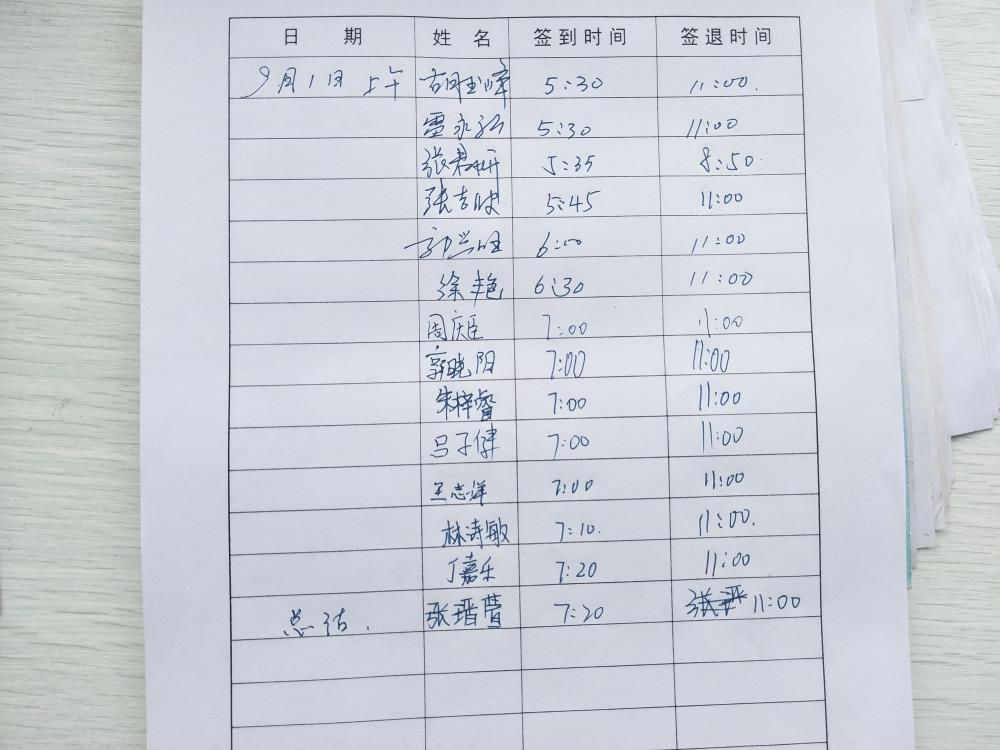 日 期 姓 名 签到时间 签退时间
9月1日 上午 胡玉峰 5:30 11:00.
雷永弘 5:30 11:00
张君妍 5:35 8:50.
张吉 5:45 11:00
6:00 11:00
徐艳 6:30 11:00
周庆臣 7:00 11:00
郭晓阳 7:00 11:00
朱梓睿 7:00 11:00
吕子健 7:00 11:00
王志洋 7:00 11:00
林诗敏 7:10. 11:00.
丁嘉乐 7:20 11:00
总结. 张瑨萱 7:20 11:00